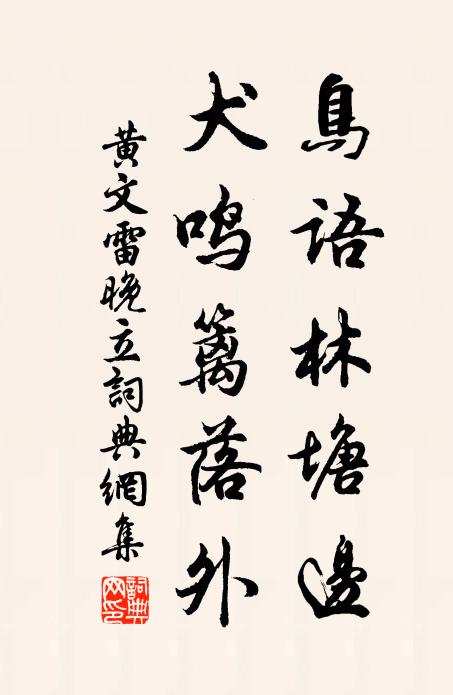 鳥語林塘邊
犬鳴籬落外
黃文雷晚立詞典網集
詞典網印